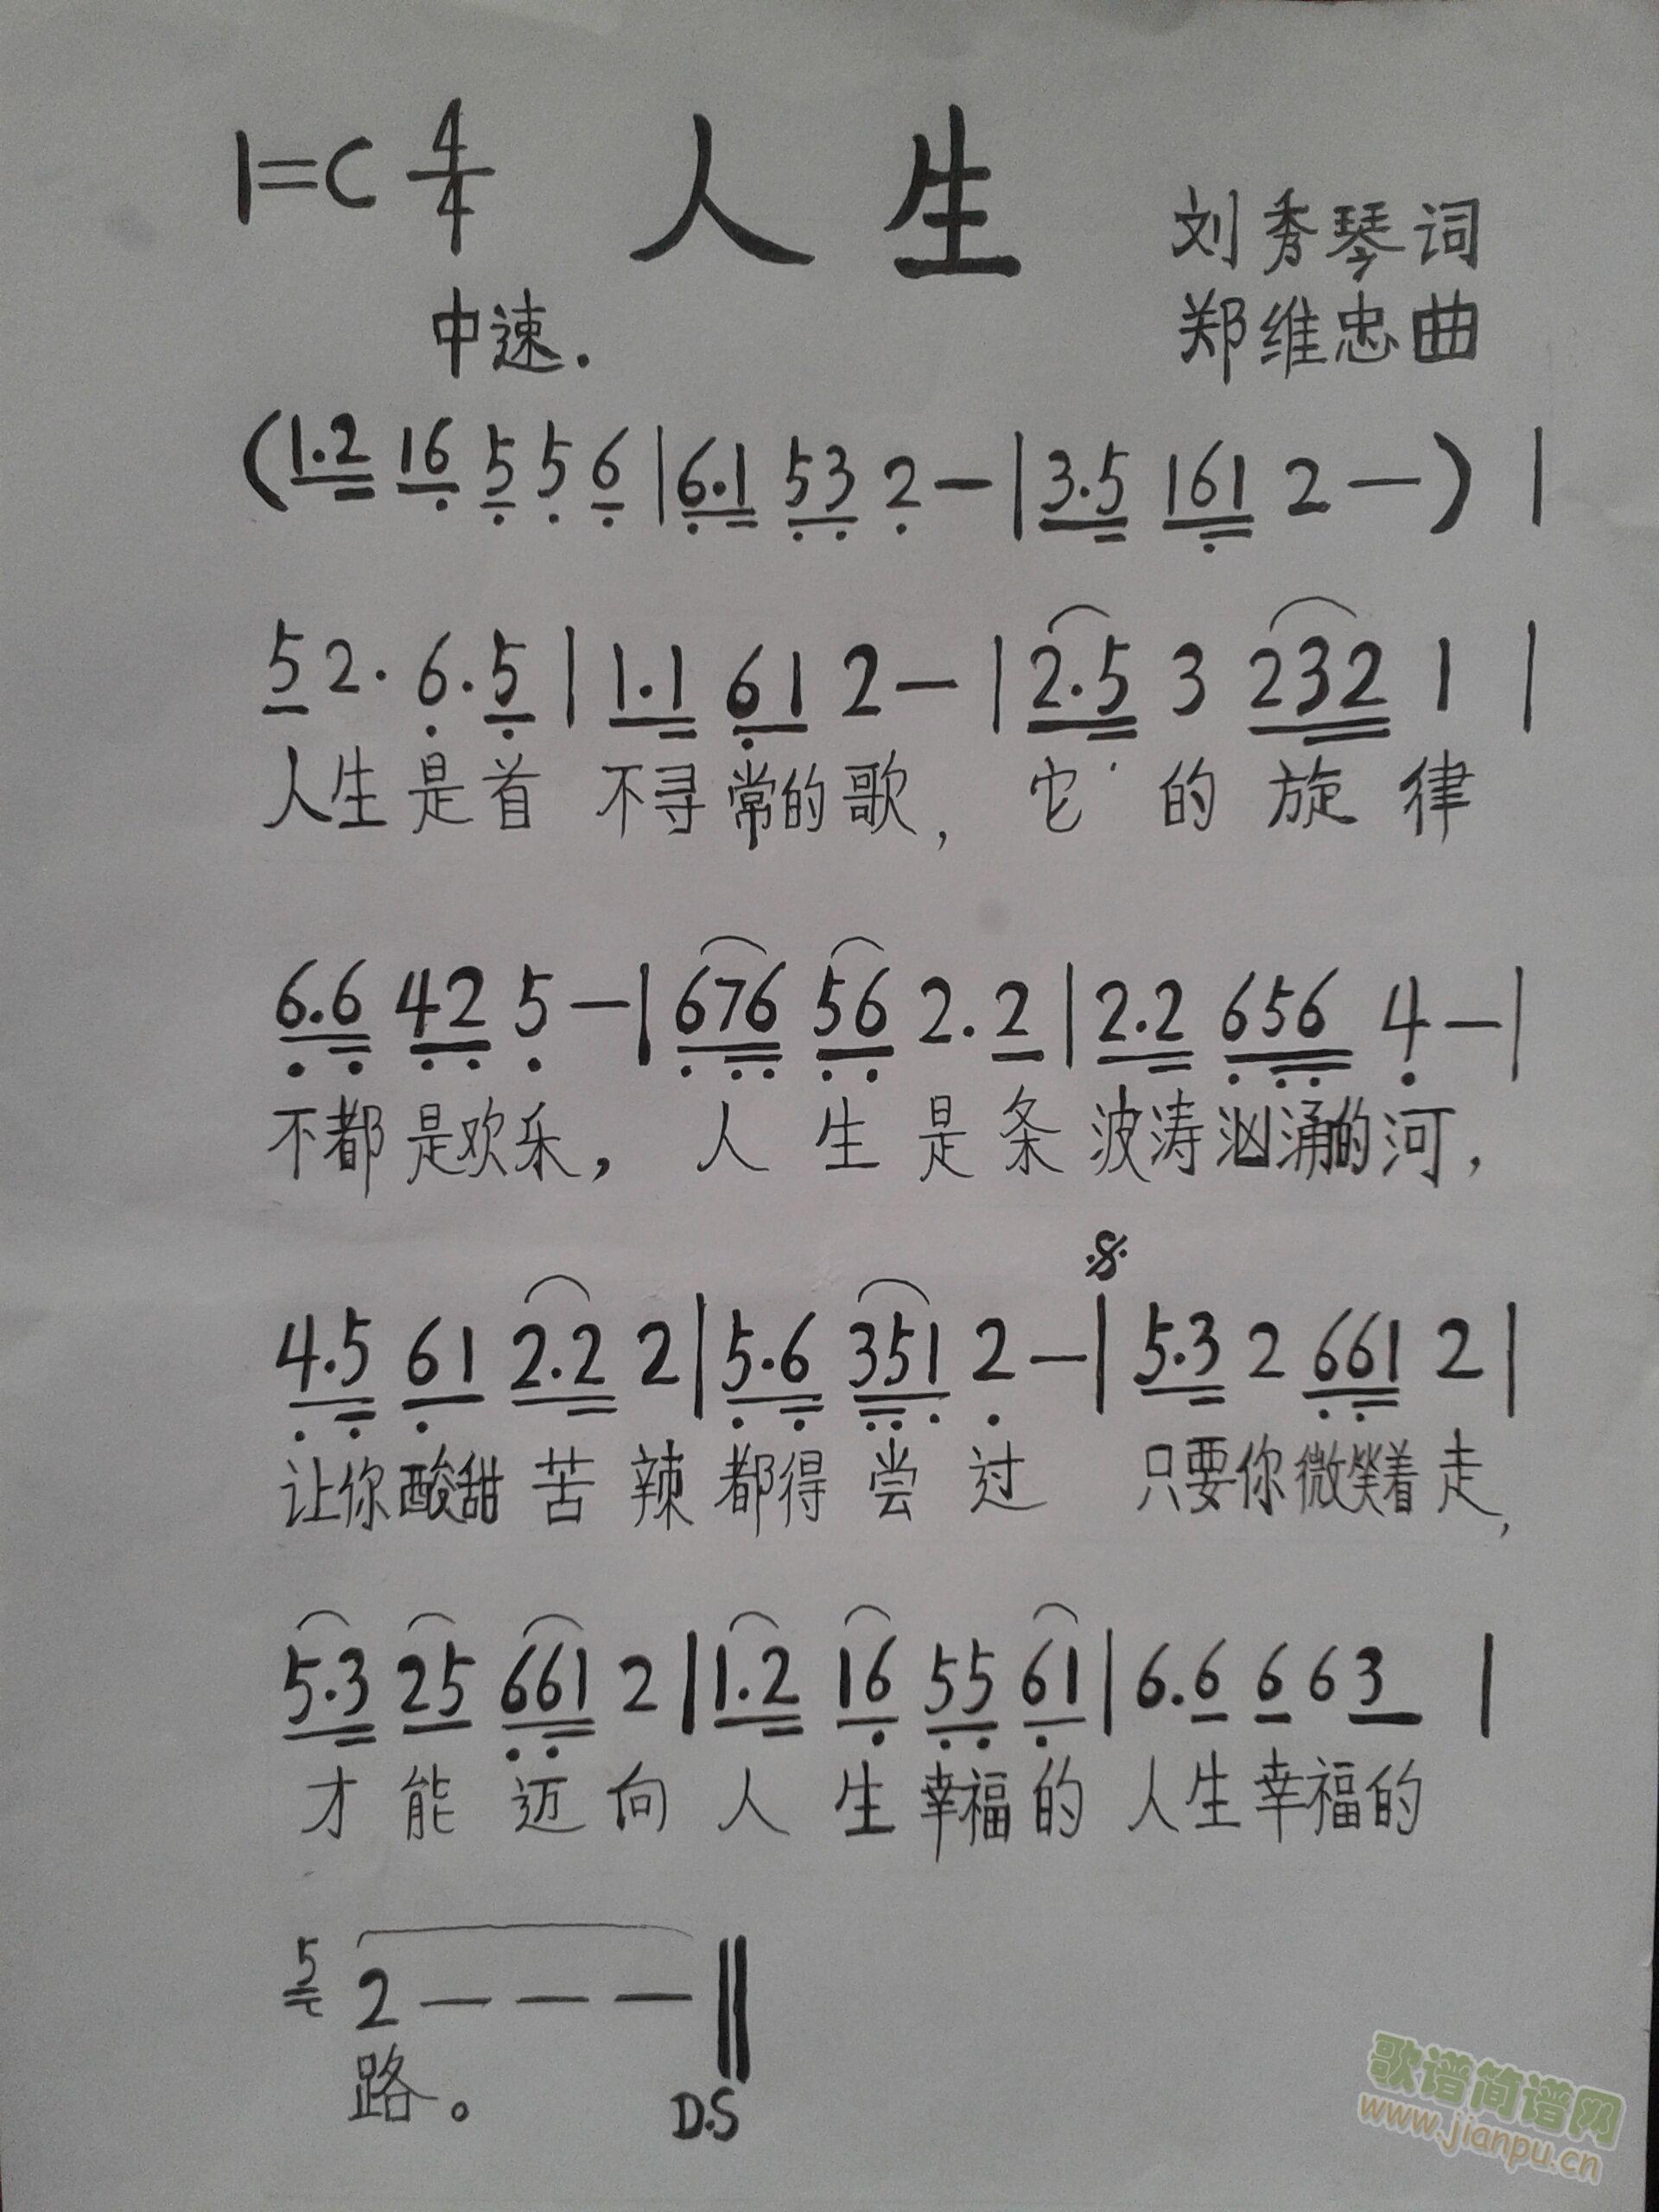 1=C 4/4 人生
刘秀琴词
中速.
郑维忠曲
(1.2 16 5 5 6 | 6.1 53 2 — | 3.5 161 2 — ) |
5 2. 6.5 | 1.1 61 2 — | 2.5 3 232 1 |
人生是首 不寻常的歌, 它的旋律
6.6 42 5 — | 676 56 2.2 | 2.2 656 4 — |
不都是欢乐, 人生是条波涛汹涌的河,
𝄋
4.5 61 2.2 2 | 5.6 351 2 — | 5.3 2 661 2 |
让你酸甜苦辣都得尝过 只要你微笑着走,
5.3 25 661 2 | 1.2 16 55 61 | 6.6 6 6 3 |
才能迈向人生幸福的人生幸福的
5 2 — — — ‖
路。
D.S
歌谱简谱网
www.jianpu.cn